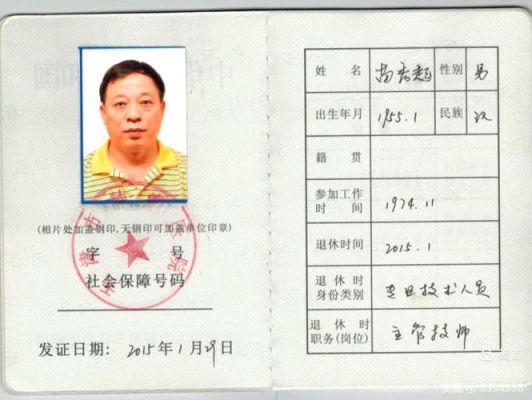 (相片处加盖钢印,无钢印可加盖单位印章)
字 号
社会保障号码
发证日期: 2015年1月29日
姓 名 性别 男
出生年月 1955.1 民族 汉
籍 贯
参加工作
时 间 1974.11
退休时间 2015.1
退 休 时
身份类别 技术人员
退 休 时
职务(岗位) 主管技师